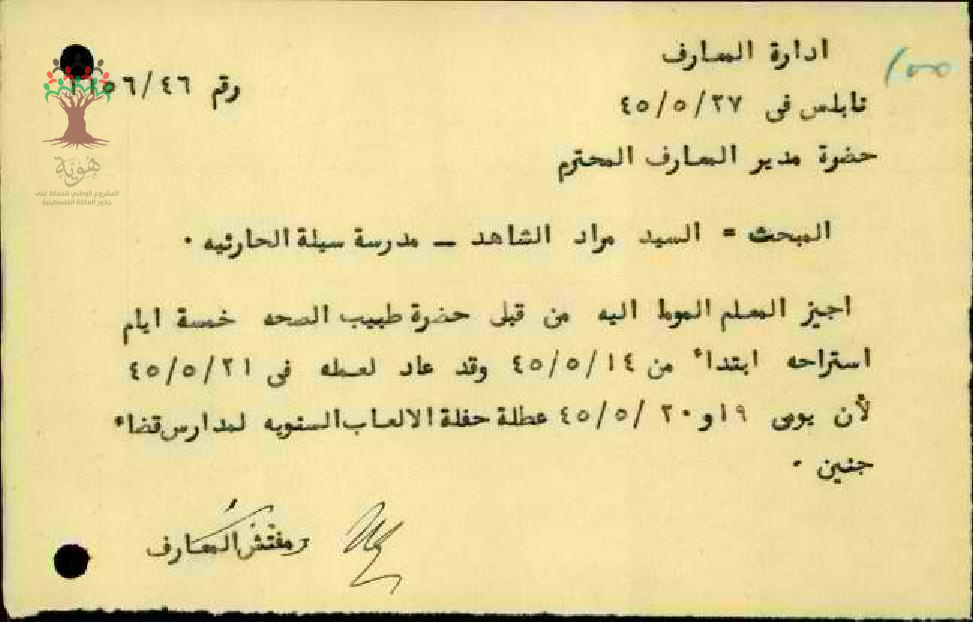 ادارة المعارف
رقم ٤٦/٥٦
نابلس فى ٤٥/٥/٢٧
١٠٠
حضرة مدير المعارف المحترم
هُوِيَّة
المشروع الوطني للحفاظ على
جذور العائلة الفلسطينية
المبحث = السيد مراد الشاهد ــ مدرسة سيلة الحارثيه ٠
اجيز المعلم الموما اليه من قبل حضرة طبيب الصحه خمسة ايام
استراحه ابتداء من ٤٥/٥/١٤ وقد عاد لعمله فى ٤٥/٥/٢١
لأن يومى ١٩ و ٢٠ /٤٥/٥ عطلة حفلة الالعاب السنويه لمدارس قضاء
جنين ٠
مفتش المعارف